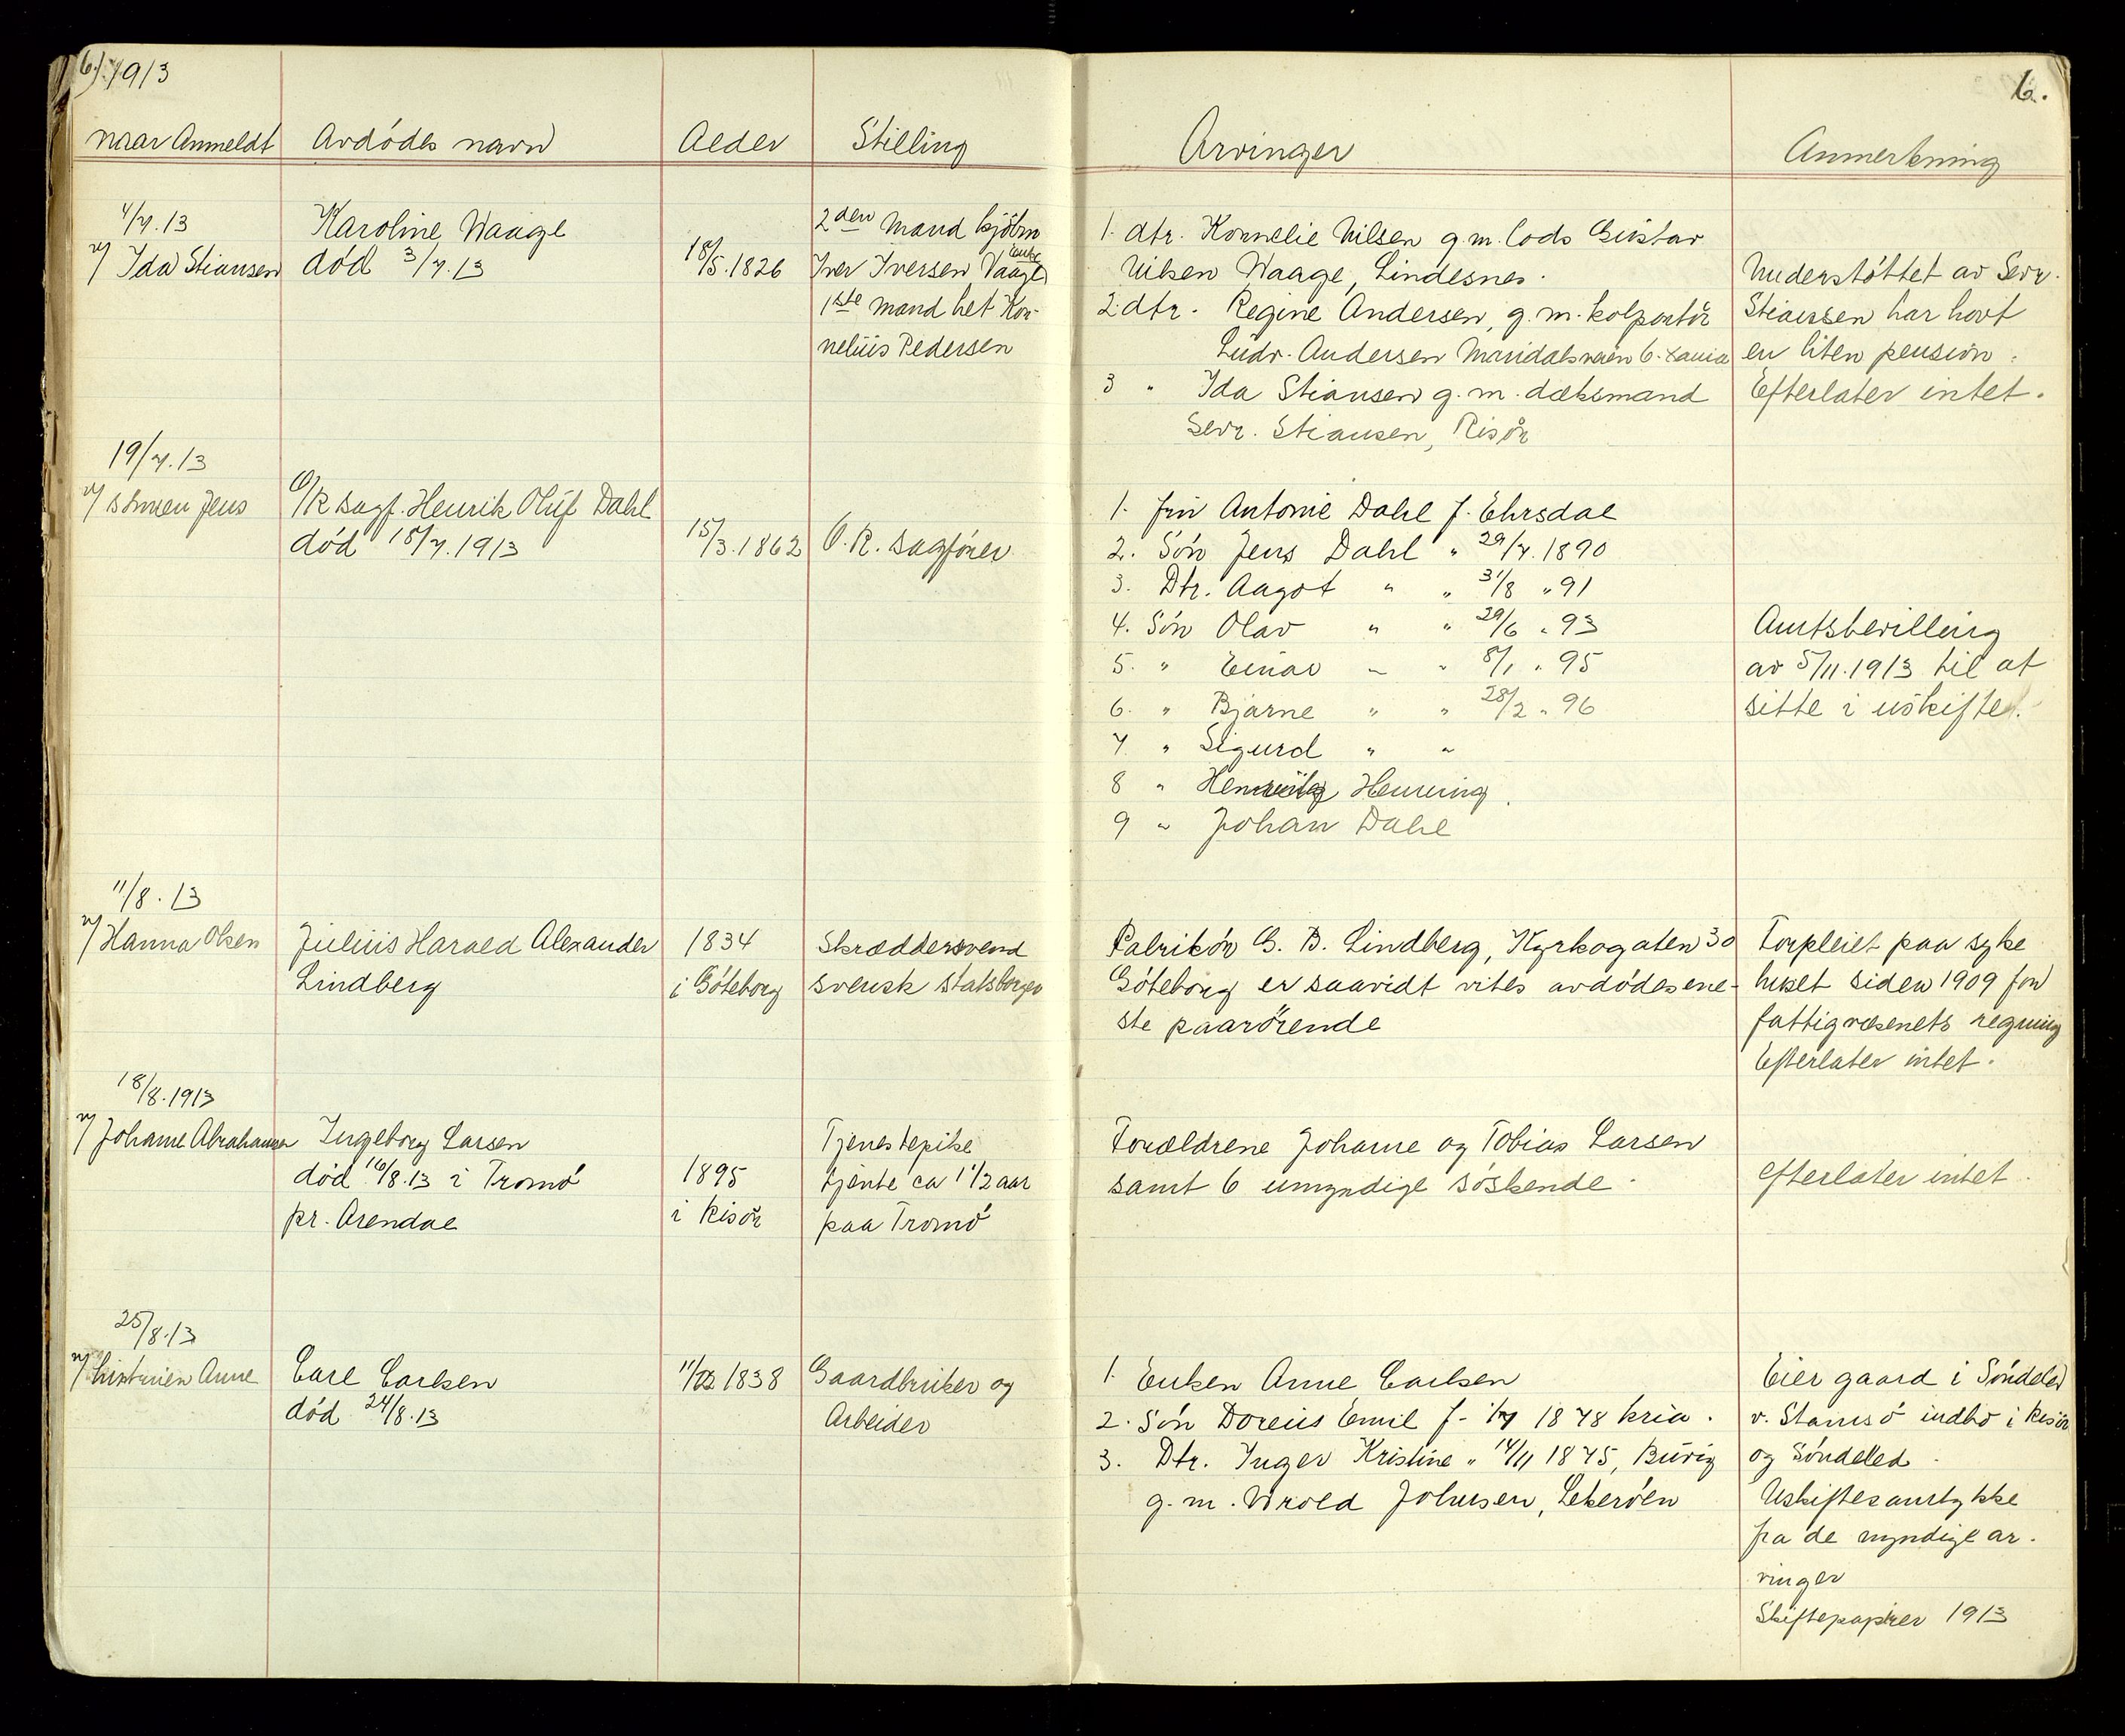 6.) 1913
6.
naar Anmeldt
Avdødes navn
Alder
Stilling
Arvinger
Anmerkning
4/7.13
v/ Ida Stiansen
Karoline Waage
død 3/7.13
18/5.1826
2den mand kjøbm
Iver Iversen Vaage
enke
1ste mand het Kor-
nelius Pedersen
1. dtr. Kornelie Nilsen g.m. lods Gustav
Nilsen Waage, Lindesnes.
2. dtr. Regine Andersen, g.m. kolportör
Ludv. Andersen Maridalsveien 6. Xania
3 " Ida Stiansen g.m. dæksmand
Sevr. Stiansen, Risør
Understøttet av Sevr.
Stiansen har havt
en liten pension.
Efterlater intet.
19/7.13
v/ sønnen Jens
O/R sagf. Henrik Oluf Dahl
død 18/7.1913
15/3.1862
O.R. sagfører
1. fru Antonie Dahl f. Ehrsdal
2. Søn Jens Dahl " 29/7.1890
3. Dtr. Aagot " " 31/8 "91
4. Søn Olav " " 29/6 "93
5. " Einar " " 8/1 "95
6. " Bjarne " " 28/2 "96
7 " Sigurd " "
8 " Henning
9 " Johan Dahl
Amtsbevilling
av 5/11.1913 til at
sitte i uskifte.
11/8.13
v/ Hanna Olsen
Julius Harald Alexander
Lindberg
1834
i Göteborg
Skræddersvend
svensk statsborger
Fabrikör G. B. Lindberg, Kyrkogaten 30
Göteborg er saavidt vites avdødes ene-
ste paarörende
Forpleiet paa syke
huset siden 1909 for
fattigvæsenets regning
Efterlater intet.
18/8.1913
v/ Johanne Abrahamsen
Ingeborg Larsen
død 16/8.13 i Tromø
pr. Arendal
1895
i Risør
Tjenestepike
tjente ca 1 1/2 aar
paa Tromø
Forældrene Johanne og Tobias Larsen
samt 6 umyndige søskende.
Efterlater intet.
25/8.13
v/ Anne
Carl Carlsen
død 24/8.13
11/12 1838
Gaardbruker og
Arbeider
1. Enken Anne Carlsen
2. Søn Doreius Emil f. 1878 kria.
3. Dtr. Inger Kristine " 14/11 1875,
g.m. Johnsen,
Eier gaard i Søndeled
v. indbo i Risør
og Søndeled.
Uskiftesamtykke
fra de myndige ar-
vinger
Skiftepapirer 1913